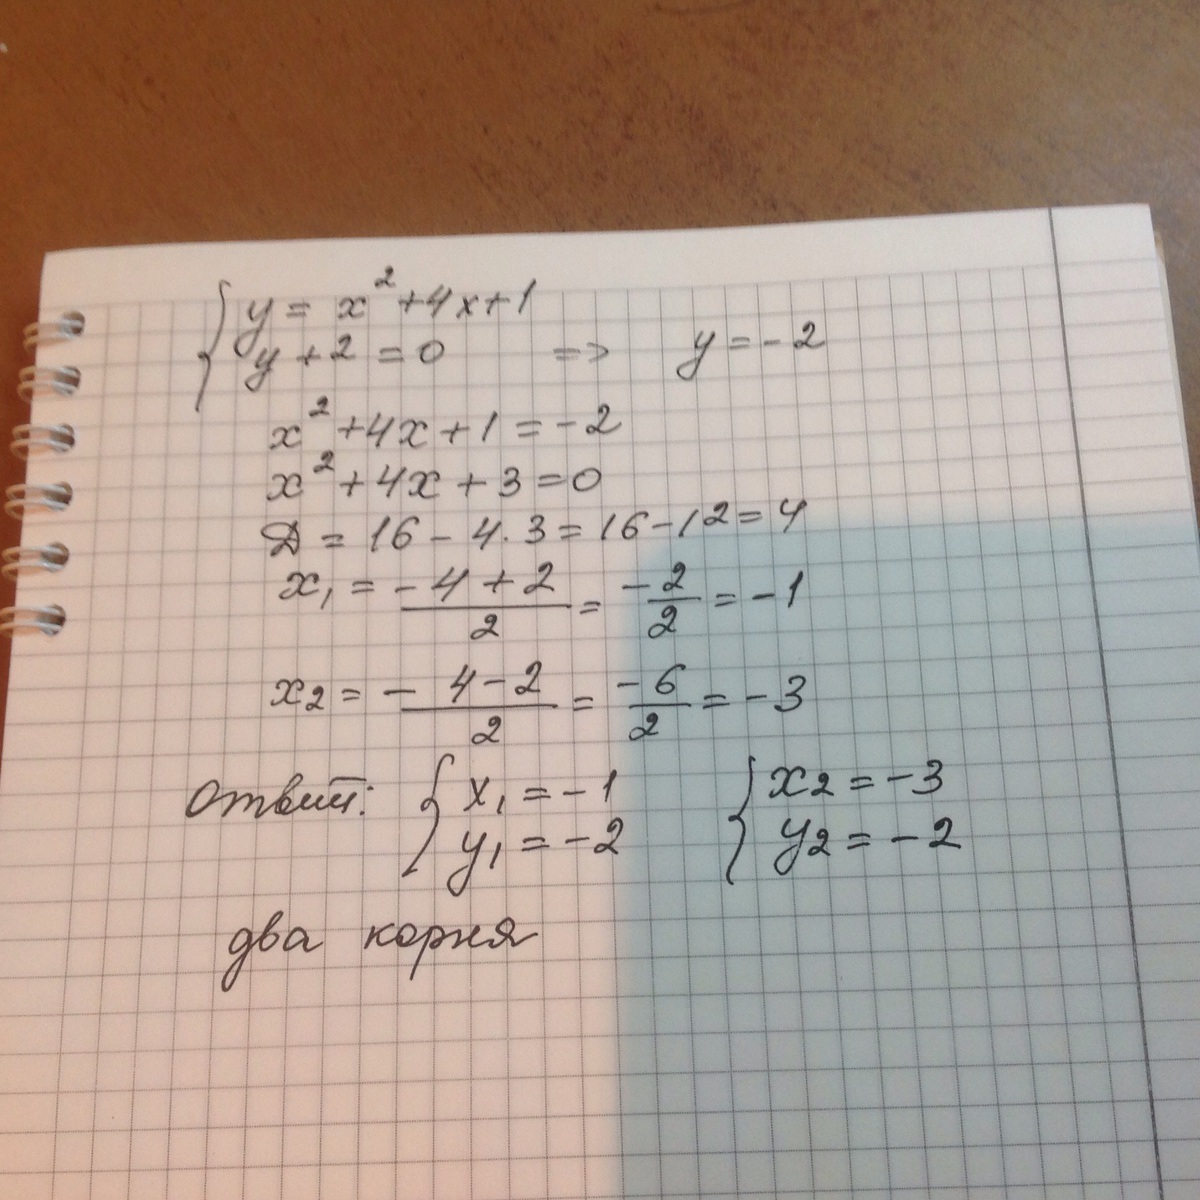 { y = x² + 4x + 1
y + 2 = 0 => y = -2
x² + 4x + 1 = -2
x² + 4x + 3 = 0
D = 16 - 4 · 3 = 16 - 12 = 4
x₁ = (-4 + 2)/2 = -2/2 = -1
x₂ = (-4 - 2)/2 = -6/2 = -3
Ответ: { x₁ = -1 { x₂ = -3
y₁ = -2 y₂ = -2
два корня